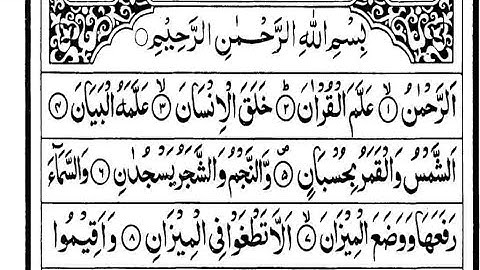 بِسْمِ اللّٰهِ الرَّحْمٰنِ الرَّحِيْمِ
اَلرَّحْمٰنُۙ۝۱ عَلَّمَ الْقُرْاٰنَؕ۝۲ خَلَقَ الْاِنْسَانَۙ۝۳ عَلَّمَهُ الْبَيَانَ۝۴
اَلشَّمْسُ وَالْقَمَرُ بِحُسْبَانٍ۪۝۵ وَّالنَّجْمُ وَالشَّجَرُ يَسْجُدٰنِ۝۶ وَالسَّمَآءَ
رَفَعَهَا وَوَضَعَ الْمِيْزَانَۙ۝۷ اَلَّا تَطْغَوْا فِى الْمِيْزَانِ۝۸ وَاَقِيْمُوا